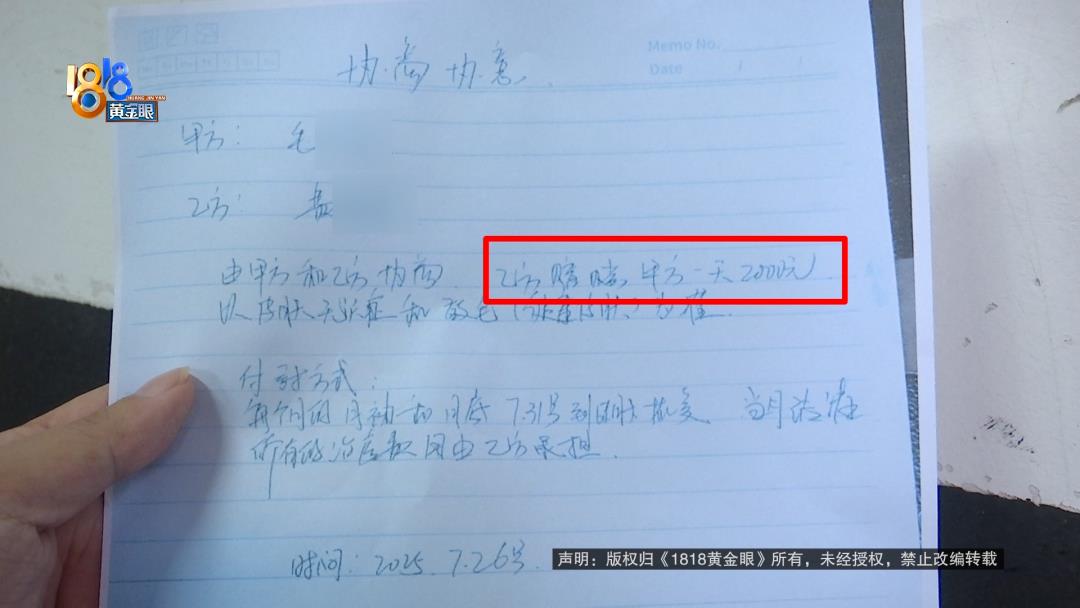 1818
HUANG JIN YAN
黄金眼
Memo No.
Date
协商协意
甲方: 毛
乙方:
由甲方和乙方协商 乙方赔赔甲方一天2000元
以皮肤无泛红和
付款方式:
每个月的月初和月底 7.31号到皮肤恢复 当月
所有的治疗款因由乙方承担.
时间: 2025.7.26号
声明：版权归《1818黄金眼》所有，未经授权，禁止改编转载